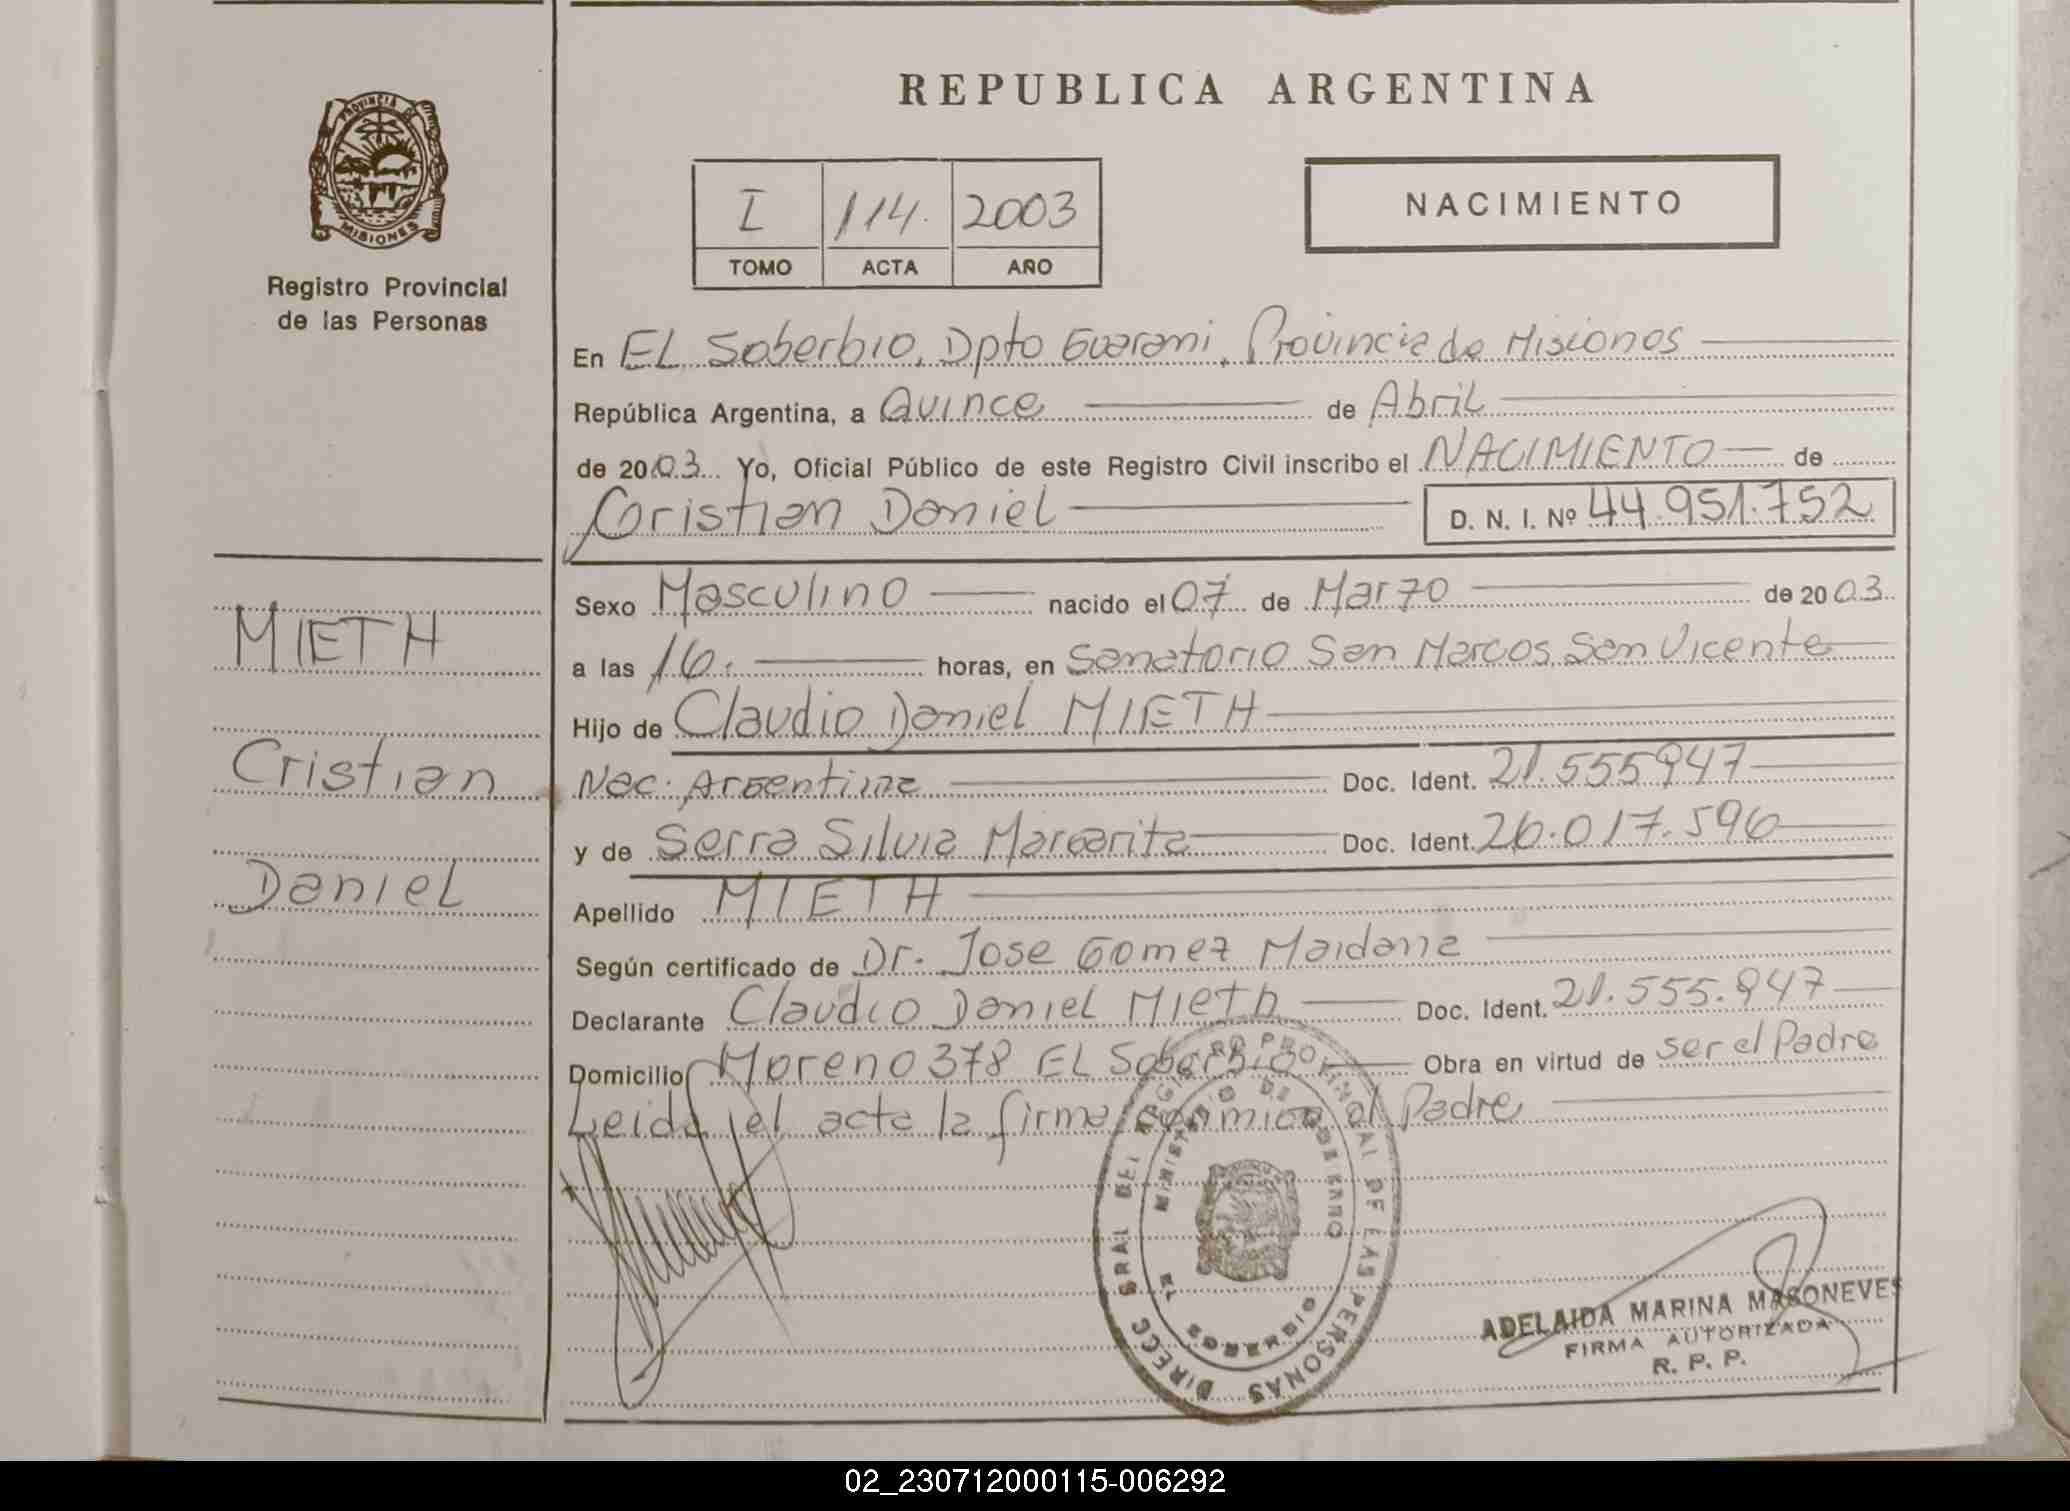 PROVINCIA DE
MISIONES
Registro Provincial
de las Personas
MIETH
Cristian
Daniel
REPUBLICA ARGENTINA
I 114. 2003
TOMO ACTA AÑO
NACIMIENTO
En EL Soberbio, Dpto Guarani, Provincia de Misiones
República Argentina, a Quince de Abril
de 2003 Yo, Oficial Público de este Registro Civil inscribo el NACIMIENTO de
Cristian Daniel D. N. I. Nº 44.951.752
Sexo Masculino nacido el 07 de Marzo de 2003
a las 16. horas, en Sanatorio San Marcos San Vicente
Hijo de Claudio Daniel MIETH
Nac. Argentina Doc. Ident. 21.555947
y de Serra Silvia Margarita Doc. Ident. 26.017.596
Apellido MIETH
Según certificado de Dr. Jose Gomez Maidana
Declarante Claudio Daniel Mieth Doc. Ident. 21.555.947
Domicilio Moreno 378 EL Soberbio Obra en virtud de ser el Padre
Leida el acta la firma conmigo el Padre
DIRECC GRAL DEL REGISTRO PROVINCIAL DE LAS PERSONAS
MINISTERIO DE GOBIERNO
EL SOBERBIO
MISIONES
ADELAIDA MARINA MASONEVES
FIRMA AUTORIZADA
R. P. P.
02_230712000115-006292